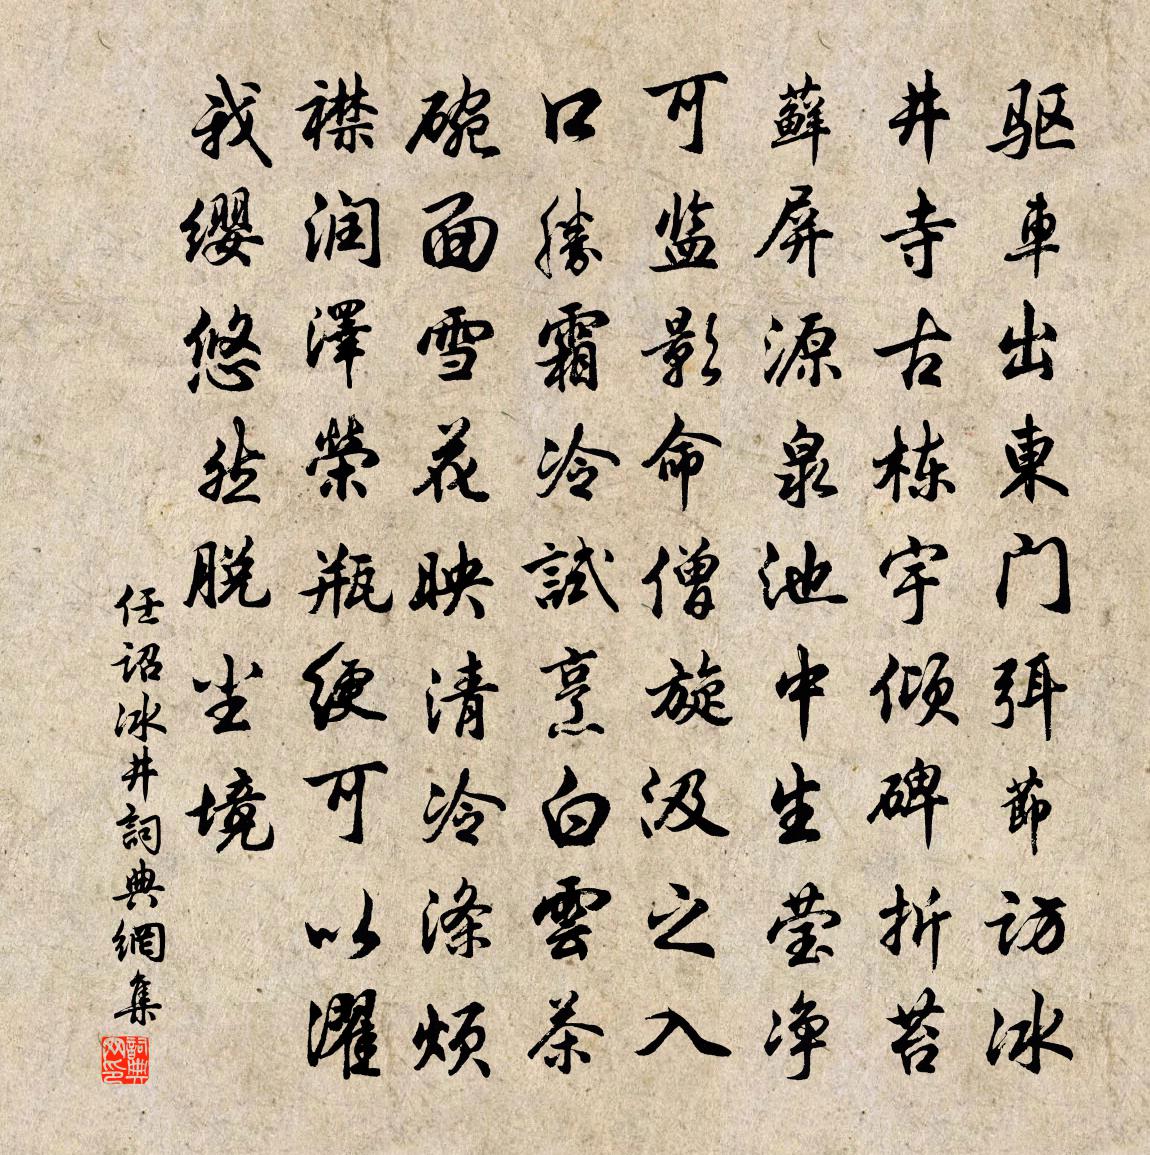 驱車出東门弭節访冰
井寺古栋宇倾碑折苔
蘚屏源泉池中生莹净
可监影命僧旋汲之入
口勝霜冷試烹白雲茶
碗面雪花映清冷涤烦
襟润澤榮瓶绠可以濯
我缨悠然脱尘境
任诏冰井詞典網集
詞典
网印